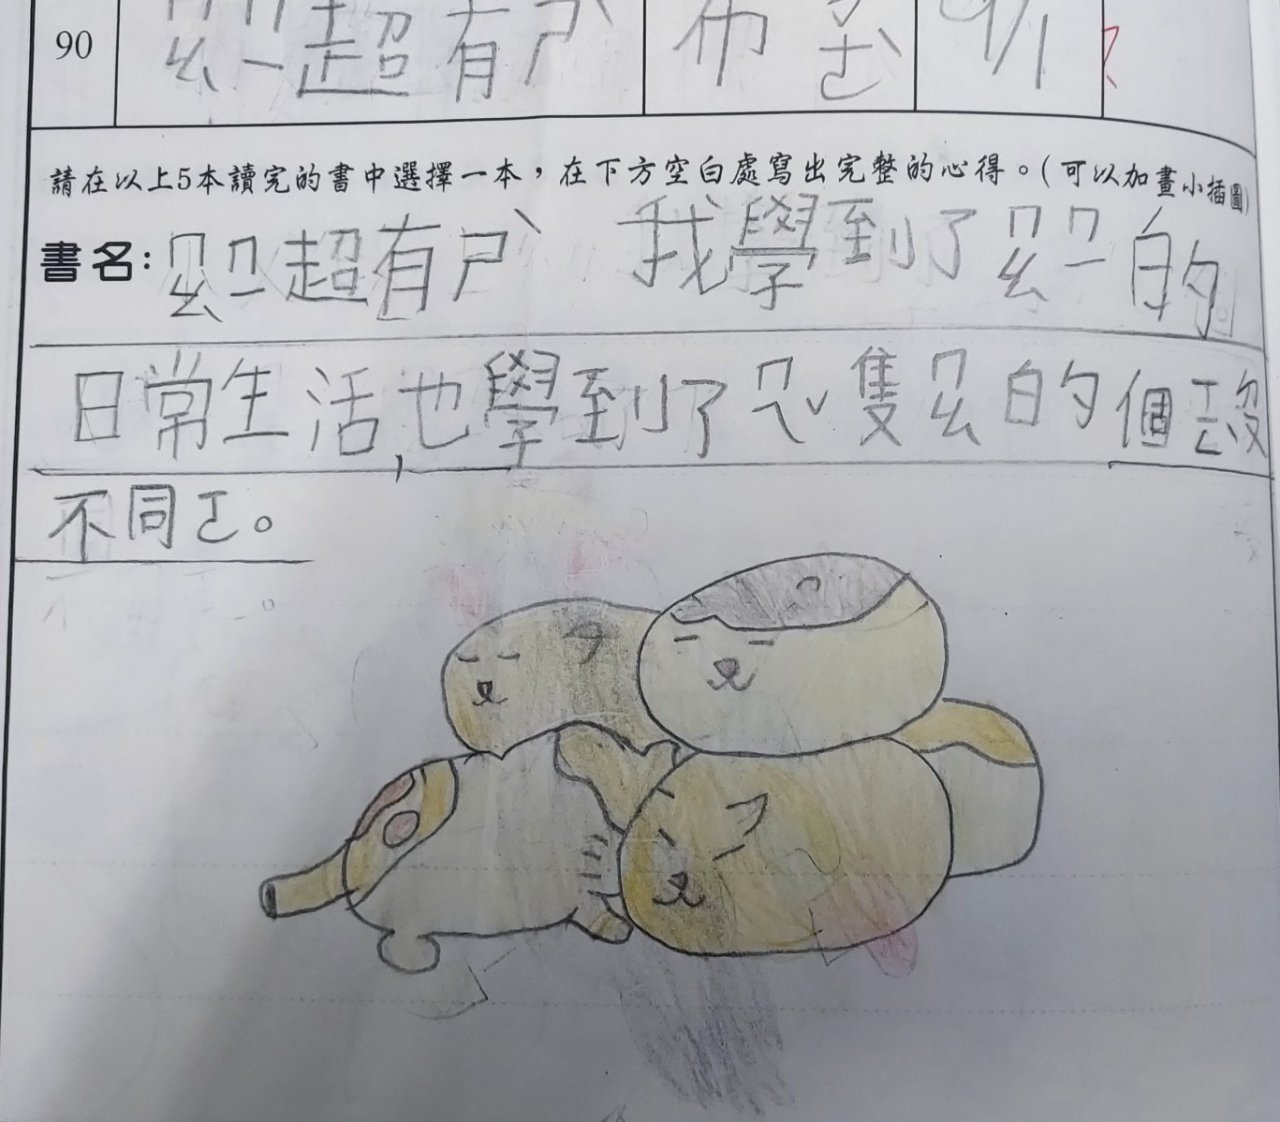 90 ㄇㄠㄇㄧ超有ㄕˋ 布
請在以上5本讀完的書中選擇一本，在下方空白處寫出完整的心得。(可以加畫小插圖)
書名: ㄇㄠㄇㄧ超有ㄕˋ 我學到了ㄇㄠㄇㄧ的
日常生活,也學到了ㄇㄟˇ隻ㄇㄠ的個
不同。